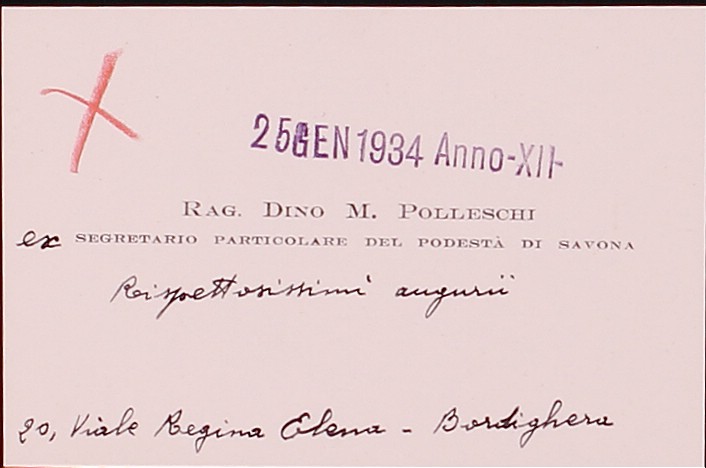 25 GEN 1934 Anno-XII-
RAG. DINO M. POLLESCHI
ex SEGRETARIO PARTICOLARE DEL PODESTÀ DI SAVONA
Rispettosissimi augurii
20, Viale Regina Elena - Bordighera